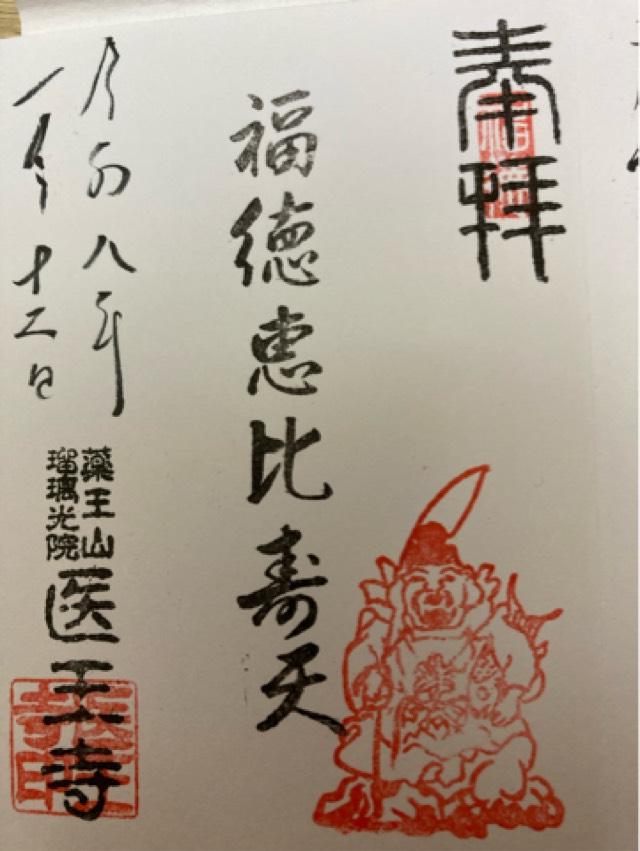 奉拝
福徳
福徳恵比寿天
令和八年
一月十二日
藥王山
瑠璃光院
医王寺